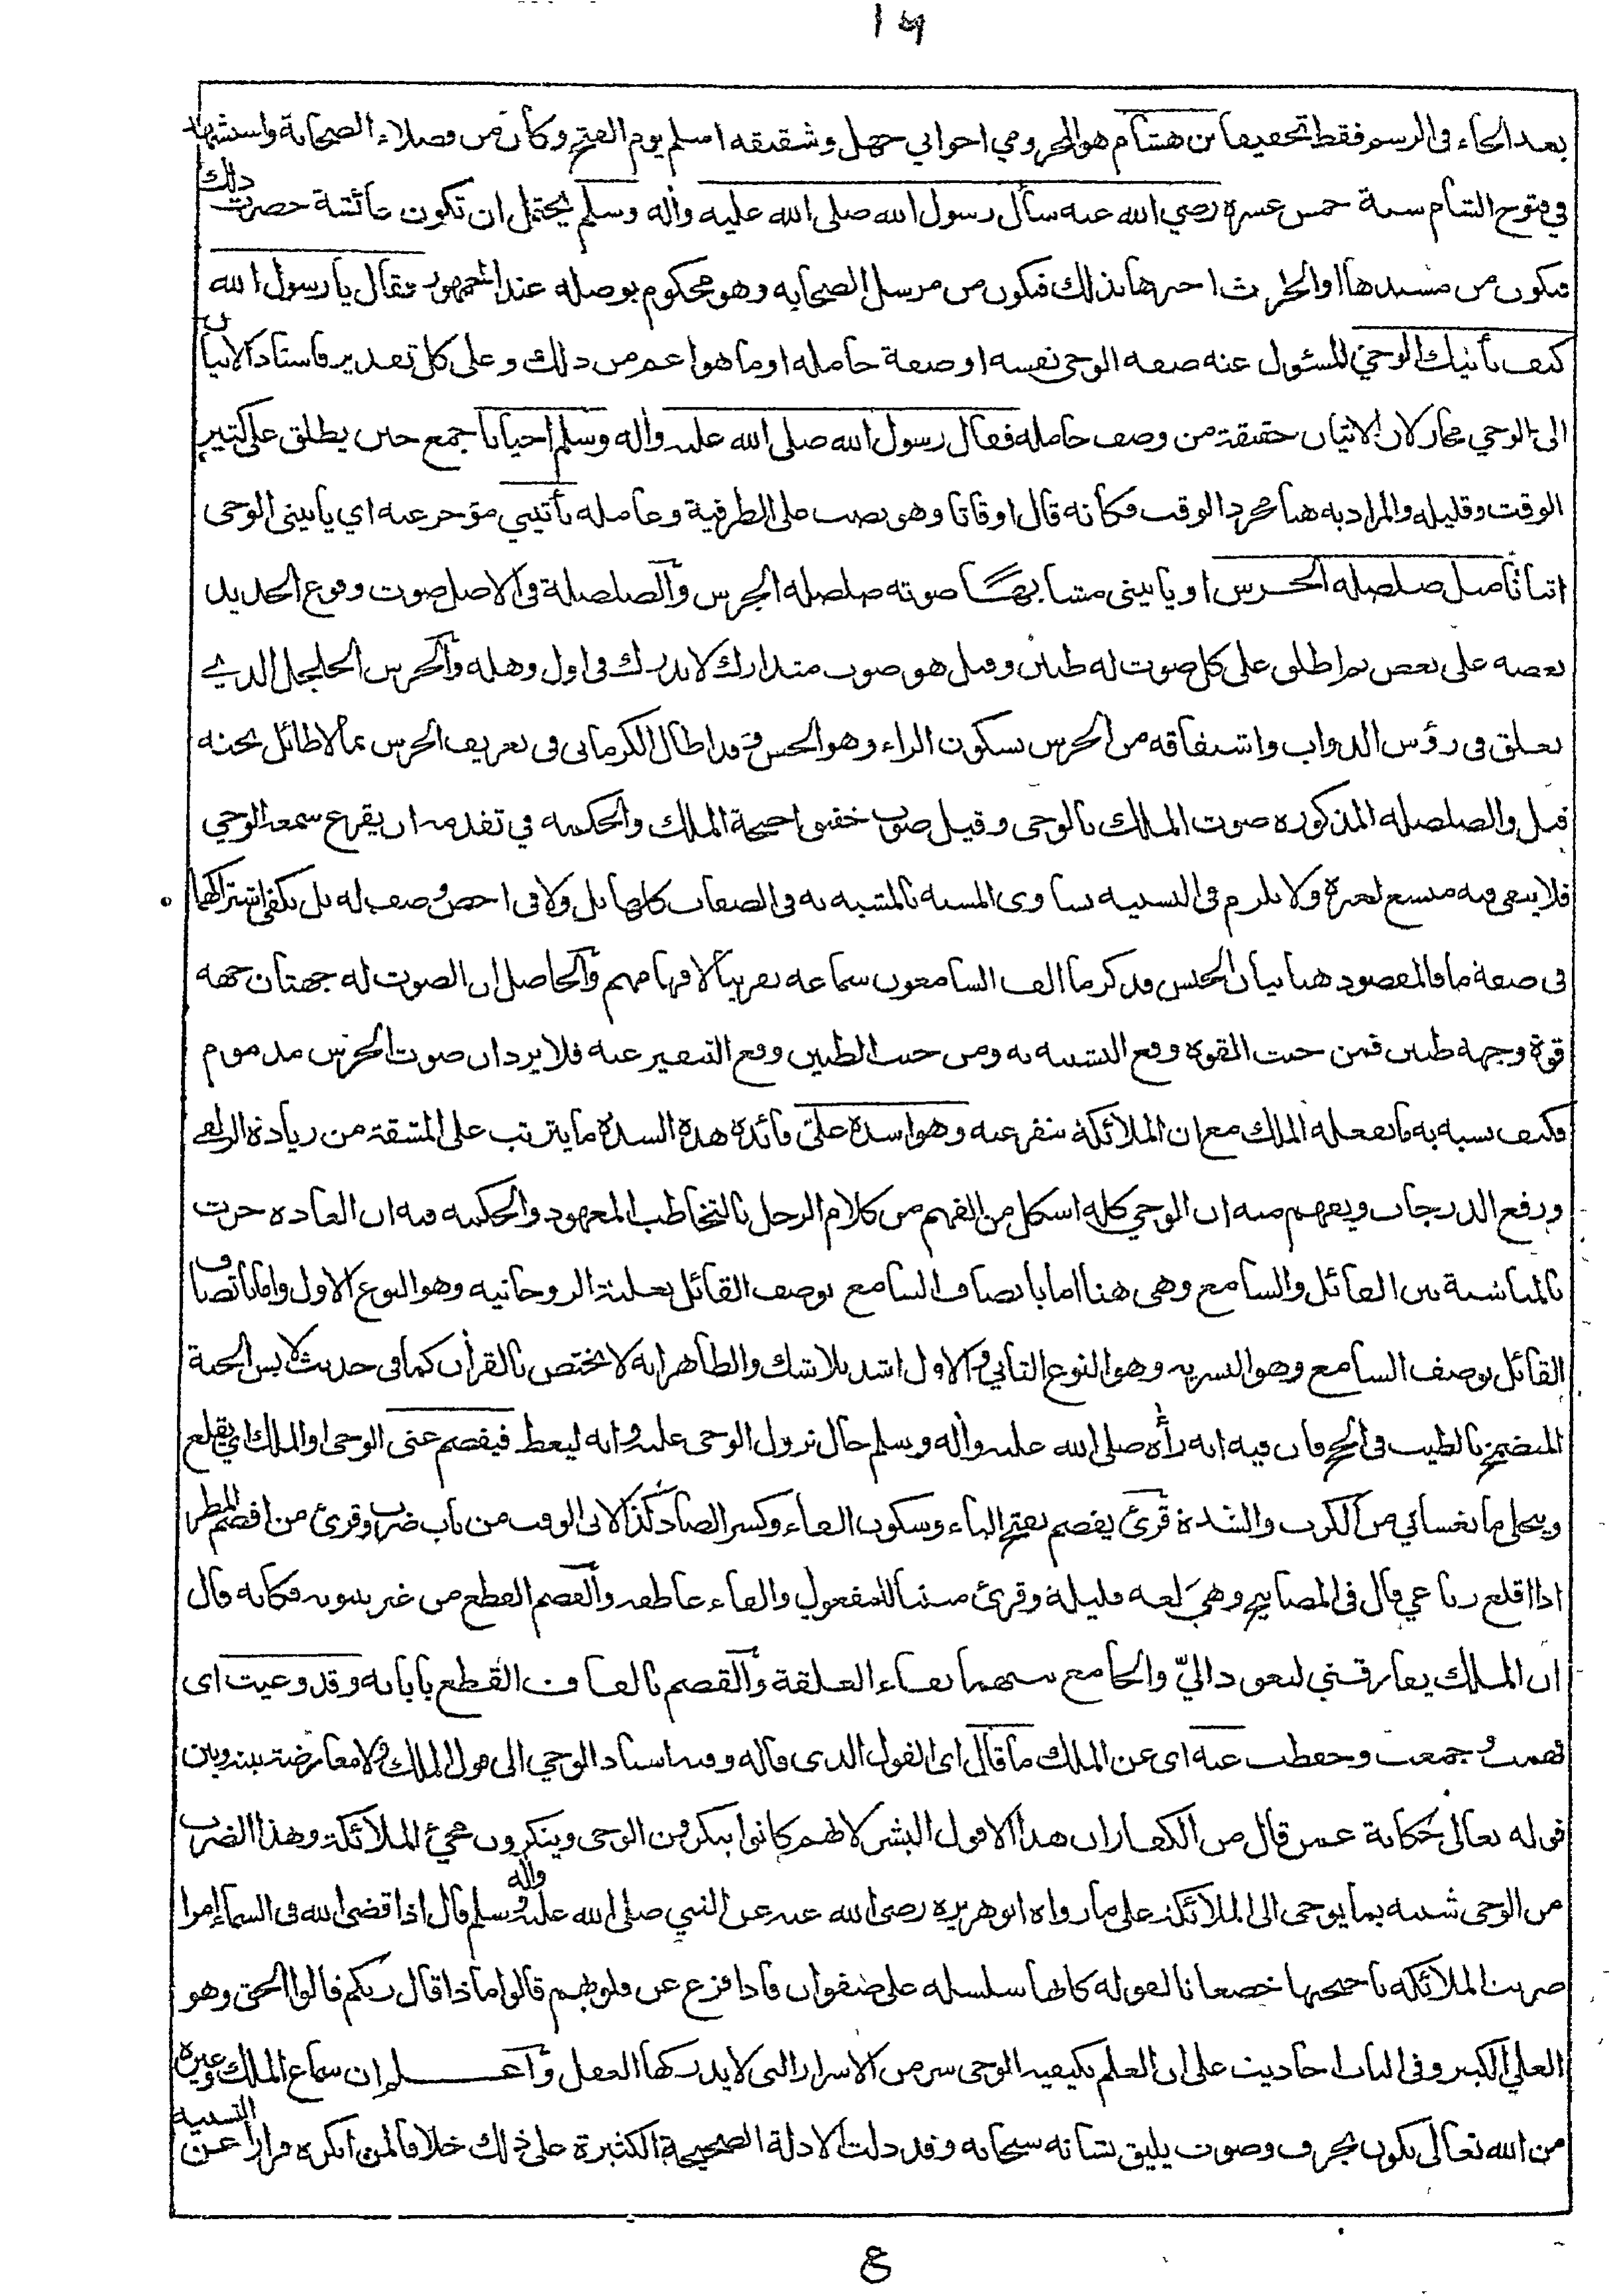 ١٩
بعد الحاء في الرسم فقط تخفيفا بن هشام هو المخزومي اخو ابي جهل وشقيقه اسلم يوم الفتح وكان من فضلاء الصحابة واستشهد
في فتوح الشام سنة خمس عشرة رضي الله عنه سأل رسول الله صلى الله عليه وأله وسلم يحتمل ان تكون عائشة حضرت ذلك
فيكون من مسندها او الحارث اخبرها بذلك فيكون من مرسل الصحابه وهو محكوم بوصله عند الجمهور فقال يا رسول الله
كيف يأتيك الوحي المسئول عنه صفه الوحي نفسه او صفة حامله او ما هو اعم من ذلك وعلى كل تقدير فاسناد الاتيان
الى الوحي مجاز لان الاتيان حقيقة من وصف حامله فقال رسول الله صلى الله عليه وأله وسلم احيانا جمع حين يطلق على كثير
الوقت وقليله والمراد به هنا مجرد الوقت فكأنه قال اوقاتا وهو نصب على الظرفية وعامله يأتيني مؤخر عنه اي يأتيني الوحي
اتيانا مثل صلصله الجرس او يأتيني مشابها صوته صلصله الجرس والصلصلة في الاصل صوت وقوع الحديد
بعضه على بعض ثم اطلق على كل صوت له طنين وقيل هو صوت متدارك لا يدرك في اول وهله والجرس الجلجل الذي
يعلق في رؤس الدواب واشتقاقه من الجرس بسكون الراء وهو الحس وقد اطال الكرماني في تعريف الجرس بما لا طائل تحته
قيل والصلصله المذكوره صوت الملك بالوحي وقيل صوت خفق اجنحة الملك والحكمه في تقدمه ان يقرع سمعه الوحي
فلا يبقى فيه متسع لغيره ولا يلزم في التشبيه تساوى المشبه بالمشبه به في الصفات كلها بل ولا في اخص وصف له بل يكفي اشتراكهما
في صفة ما فالمقصود هنا بيان الجنس فذكر ما الف السامعون سماعه تقريبا لافهامهم والحاصل ان الصوت له جهتان جهه
قوة وجهة طنين فمن حيث القوه وقع التشبيه به ومن حيث الطنين وقع التنفير عنه فلا يرد ان صوت الجرس مذموم
فكيف يشبه به ما يفعله الملك مع ان الملائكة تنفر عنه وهو اشده علي فائدة هذه الشدة ما يترتب على المشقة من زيادة الزلفى
ورفع الدرجات ويفهم منه ان الوحي كله اشكل من الفهم من كلام الرجل بالتخاطب المعهود والحكمه فيه ان العاده جرت
بالمناسبة بين القائل والسامع وهي هنا اما باتصاف السامع بوصف القائل بغلبة الروحانيه وهو النوع الاول واما باتصاف
القائل بوصف السامع وهو البشريه وهو النوع الثاني والاول اشد بلا شك والظاهر انه لا يختص بالقرأن كما في حديث لابس الجبة
المتضمخ بالطيب في الحج فان فيه انه رأه صلى الله عليه وأله وسلم حال نزول الوحي عليه وانه ليغط فيفصم عني الوحي او الملك اي يقلع
وينجلى ما يغشاني من الكرب والشدة قرئ يفصم بفتح الياء وسكون الفاء وكسر الصاد كذا لابي الوقت من باب ضرب وقرئ من افصم المطر
اذا اقلع رباعي قال في المصابيح وهي لغه قليلة وقرئ مبنيا للمفعول والفاء عاطفه والفصم القطع من غير بينونه فكانه قال
ان الملك يفارقني ليعود اليّ والجامع بينهما بقاء العلقة والقصم بالقاف القطع بابانه وقد وعيت اى
فهمت وجمعت وحفظت عنه اى عن الملك ما قال اى القول الذى قاله وفيه اسناد الوحي الى قول الملك ولا معارضة بينه وبين
قوله تعالى حكاية عمن قال من الكفار ان هذا الا قول البشر لانهم كانوا ينكرون الوحي وينكرون مجيئ الملائكة وهذا الضرب
من الوحي شبيه بما يوحى الى الملائكة على ما رواه ابو هريره رضي الله عنه عن النبي صلى الله عليه وأله وسلم قال اذا قضى الله في السماء امرا
ضربت الملائكه باجنحتها خضعانا لقوله كانها سلسله على صفوان فاذا فزع عن قلوبهم قالوا ماذا قال ربكم قالوا الحق وهو
العلي الكبير وفي الباب احاديث على ان العلم بكيفيه الوحي سر من الاسرار التي لا يدركها العقل واعلم ان سماع الملك وغيره
من الله تعالى يكون بحرف وصوت يليق بشانه سبحانه وقد دلت الادلة الصحيحة الكثيرة على ذلك خلافا لمن انكره فرارا عن التشبيه
ع